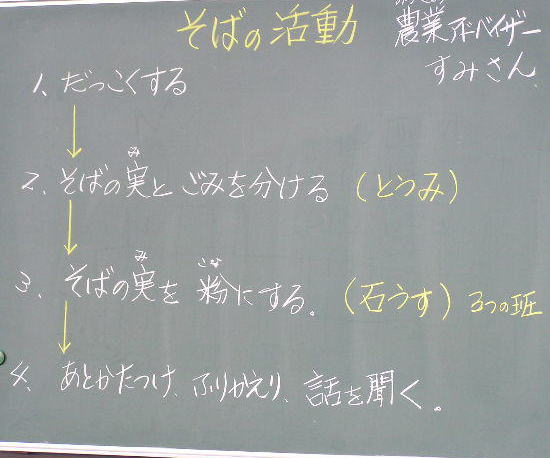 そばの活動
農業アドバイザー
すみさん
1、だっこくする
2、そばの実とごみを分ける（とうみ）
み
3、そばの実を粉にする。（石うす）3つの班
み こな
4、あとかたつけ、ふりかえり、話を聞く。